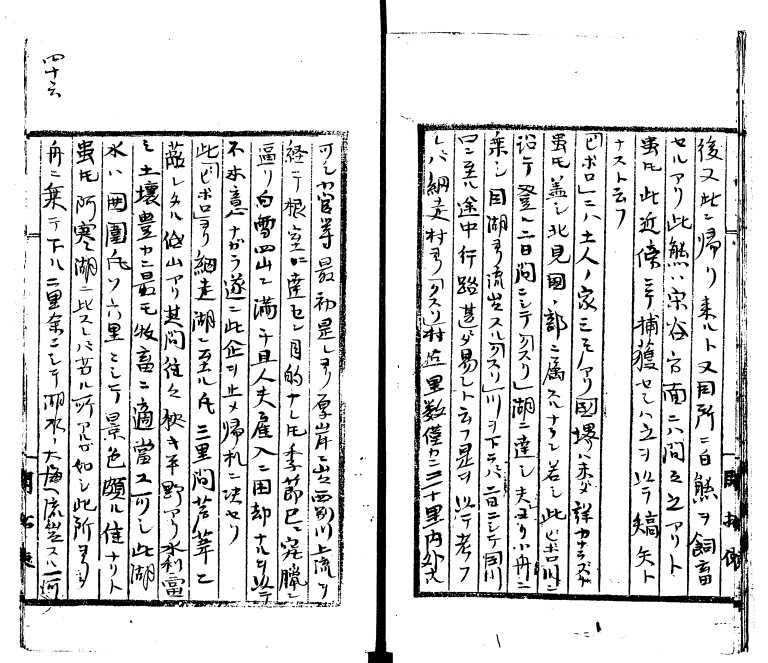 後又此ニ帰リ来ルト又同所ニ白熊ヲ飼畜
セルアリ此熊ハ宗谷方面ニハ間々之アリト
雖ヒ此近傍ニテ捕獲セシハ之ヲ以テ嚆矢ト
ナスト云フ
「ビボロ」ニハ土人ノ家三モアリ国堺ハ未タ詳カナラズ
雖ヒ蓋シ北見国ノ部ニ属スルナラン若シ此「ビボロ」川ニ
沿テ登ル二日間ニシテ「クスリ」湖ニ達シ夫ヨリ小舟ニ
乗シ同湖ヨリ流出スル「クスリ」川ヲ下テバ二日ニシテ同川
口ニ至ル途中行路甚タ易シト云フ是ヲ以テ考フ
レバ網走村ヨリ「クスリ」村迄里数僅カニ三十里内外ニ
可シ小官等最初是レヨリ厚岸ニ出西別川上流ヲ
経テ根室ニ達セン目的ナレヒ季節已ニ窮臘ニ
逼リ白雪四山ニ満チ且人夫雇入ニ困却ナルヲ以テ
不本意ナガラ遂ニ此企ヲ止メ帰札ニ决セリ
此「ビボロ」ヨリ網走湖ニ至ル凡三里間苫葬ヒ
茂レタル低山アリ其間往々狭キ平野アリ水利富
ミ土壌豊カニ最モ牧畜ニ適當ス可シ此湖
水ハ囲圍凡ソ六里ニシテ景色頗ル佳ナリト
雖ヒ阿寒湖ニ比スレバ若ル所アルガ如シ此所ヨリ
舟ニ乗テ下ル二里余ニシテ湖水ノ大海ヘ流出スル河
四十六
開拓使